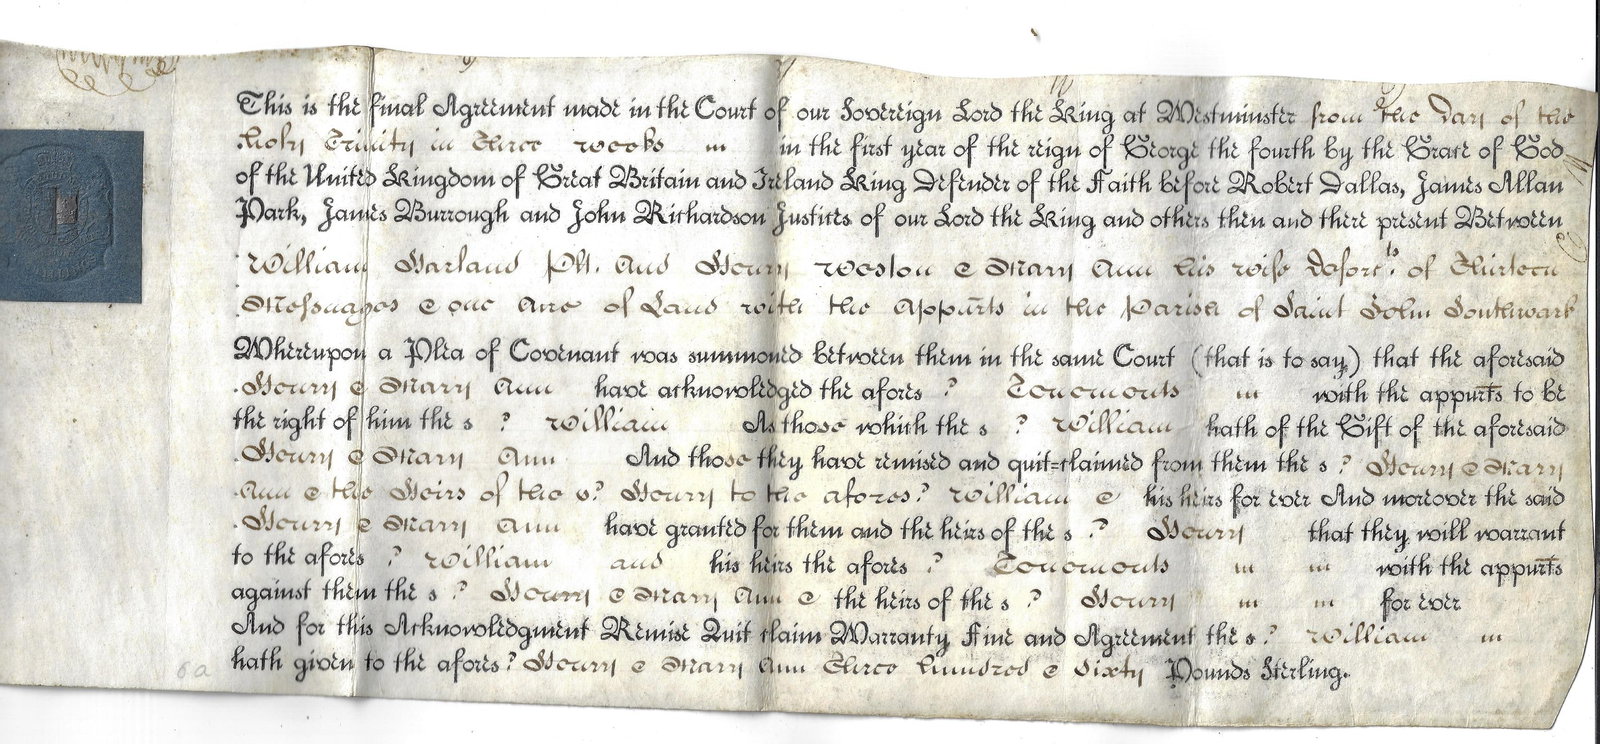 This is the final Agreement made in the Court of our Sovereign Lord the King at Westminster from the Day of the
Holy Trinity in Three weeks in the first year of the reign of George the fourth by the Grace of God
of the United Kingdom of Great Britain and Ireland King Defender of the Faith before Robert Dallas, James Allan
Park, James Burrough and John Richardson Justices of our Lord the King and others then and there present Between
William Garland Plt. And Henry Weston & Mary Ann his wife Deforts of Thirteen
Messuages & one Acre of Land with the Appurts in the Parish of Saint John Southwark
Whereupon a Plea of Covenant was summoned between them in the same Court (that is to say,) that the aforesaid
Henry & Mary Ann have acknowledged the aforesd Tenements with the appurts to be
the right of him the sd William As those which the sd William hath of the Gift of the aforesaid
Henry & Mary Ann And those they have remised and quit=claimed from them the sd Henry & Mary
Ann & the Heirs of the sd Henry to the aforesd William & his heirs for ever And moreover the said
Henry & Mary Ann have granted for them and the heirs of the sd Henry that they will warrant
to the aforesd William and his heirs the aforesd Tenements with the appurts
against them the sd Henry & Mary Ann & the heirs of the sd Henry for ever
And for this Acknowledgment Remise Quit claim Warranty Fine and Agreement the sd William
hath given to the aforesd Henry & Mary Ann Three hundred & Sixty Pounds Sterling.
6a